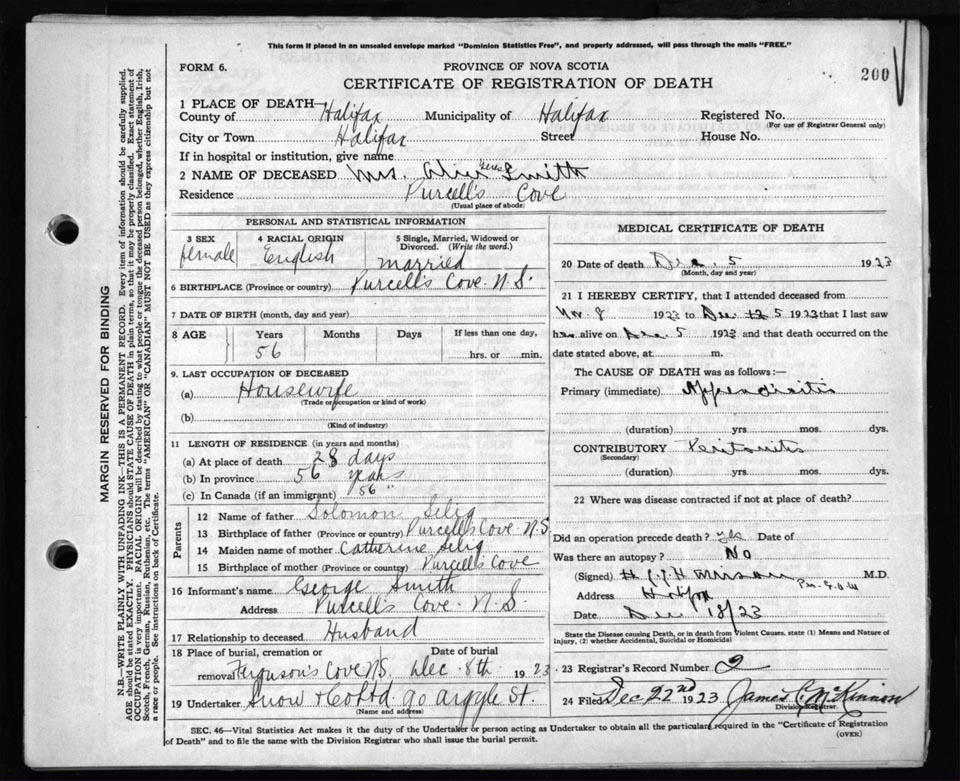 This form if placed in an unsealed envelope marked "Dominion Statistics Free", and properly addressed, will pass through the mails "FREE."
FORM 6.
PROVINCE OF NOVA SCOTIA
CERTIFICATE OF REGISTRATION OF DEATH
200
1 PLACE OF DEATH—
County of Halifax Municipality of Halifax Registered No.
(For use of Registrar General only)
City or Town Halifax Street House No.
If in hospital or institution, give name
2 NAME OF DECEASED Mrs. Alice Smith
Residence Purcell's Cove
(Usual place of abode)
PERSONAL AND STATISTICAL INFORMATION
3 SEX 4 RACIAL ORIGIN 5 Single, Married, Widowed or Divorced. (Write the word.)
female English married
6 BIRTHPLACE (Province or country) Purcell's Cove. N.S.
7 DATE OF BIRTH (month, day and year)
8 AGE Years Months Days If less than one day,
56 hrs. or min.
9. LAST OCCUPATION OF DECEASED
(a) Housewife
(Trade or occupation or kind of work)
(b)
(Kind of industry)
11 LENGTH OF RESIDENCE (in years and months)
(a) At place of death 28 days
(b) In province 56 years
(c) In Canada (if an immigrant) 56 "
Parents
12 Name of father Solomon Selig
13 Birthplace of father (Province or country) Purcell's Cove. N.S.
14 Maiden name of mother Catherine Selig
15 Birthplace of mother (Province or country) Purcell's Cove
16 Informant's name George Smith
Address Purcell's Cove. N.S.
17 Relationship to deceased Husband
18 Place of burial, cremation or removal Date of burial
Ferguson's Cove N.S. Dec. 8th 1923
19 Undertaker Snow & Co Ltd. 90 Argyle St.
(Name and address)
MEDICAL CERTIFICATE OF DEATH
20 Date of death Dec. 5 1923
(Month, day and year)
21 I HEREBY CERTIFY, that I attended deceased from
Nov. 8 1923 to Dec 5 1923 that I last saw
her alive on Dec. 5 1923 and that death occurred on
date stated above, at m.
The CAUSE OF DEATH was as follows:—
Primary (immediate) Appendicitis
(duration) yrs. mos. dys.
CONTRIBUTORY Peritonitis
(Secondary)
(duration) yrs. mos. dys.
22 Where was disease contracted if not at place of death?
Did an operation precede death? yes Date of
Was there an autopsy? No
(Signed) M.D.
Address Halifax
Date Dec 18/23
State the Disease causing Death, or in death from Violent Causes, state (1) Means and Nature of Injury, (2) whether Accidental, Suicidal or Homicidal
23 Registrar's Record Number 2
24 Filed Dec 22nd 1923 James C. McKinnon
Division Registrar.
SEC. 46—Vital Statistics Act makes it the duty of the Undertaker or person acting as Undertaker to obtain all the particulars required in the "Certificate of Registration
of Death" and to file the same with the Division Registrar who shall issue the burial permit.
(OVER)
MARGIN RESERVED FOR BINDING
N.B.—WRITE PLAINLY WITH UNFADING INK—THIS IS A PERMANENT RECORD. Every item of information should be carefully supplied.
AGE should be stated EXACTLY. PHYSICIANS should STATE CAUSE OF DEATH in plain terms, so that it may be properly classified. Exact statement of
OCCUPATION is very important. RACIAL ORIGIN will be described by stating to what people or tongue the deceased person belonged, whether English, Irish,
Scotch, French, German, Russian, Ruthenian, etc. The terms "AMERICAN" OR "CANADIAN" MUST NOT BE USED as they express citizenship but not
a race or people. See instructions on back of Certificate.